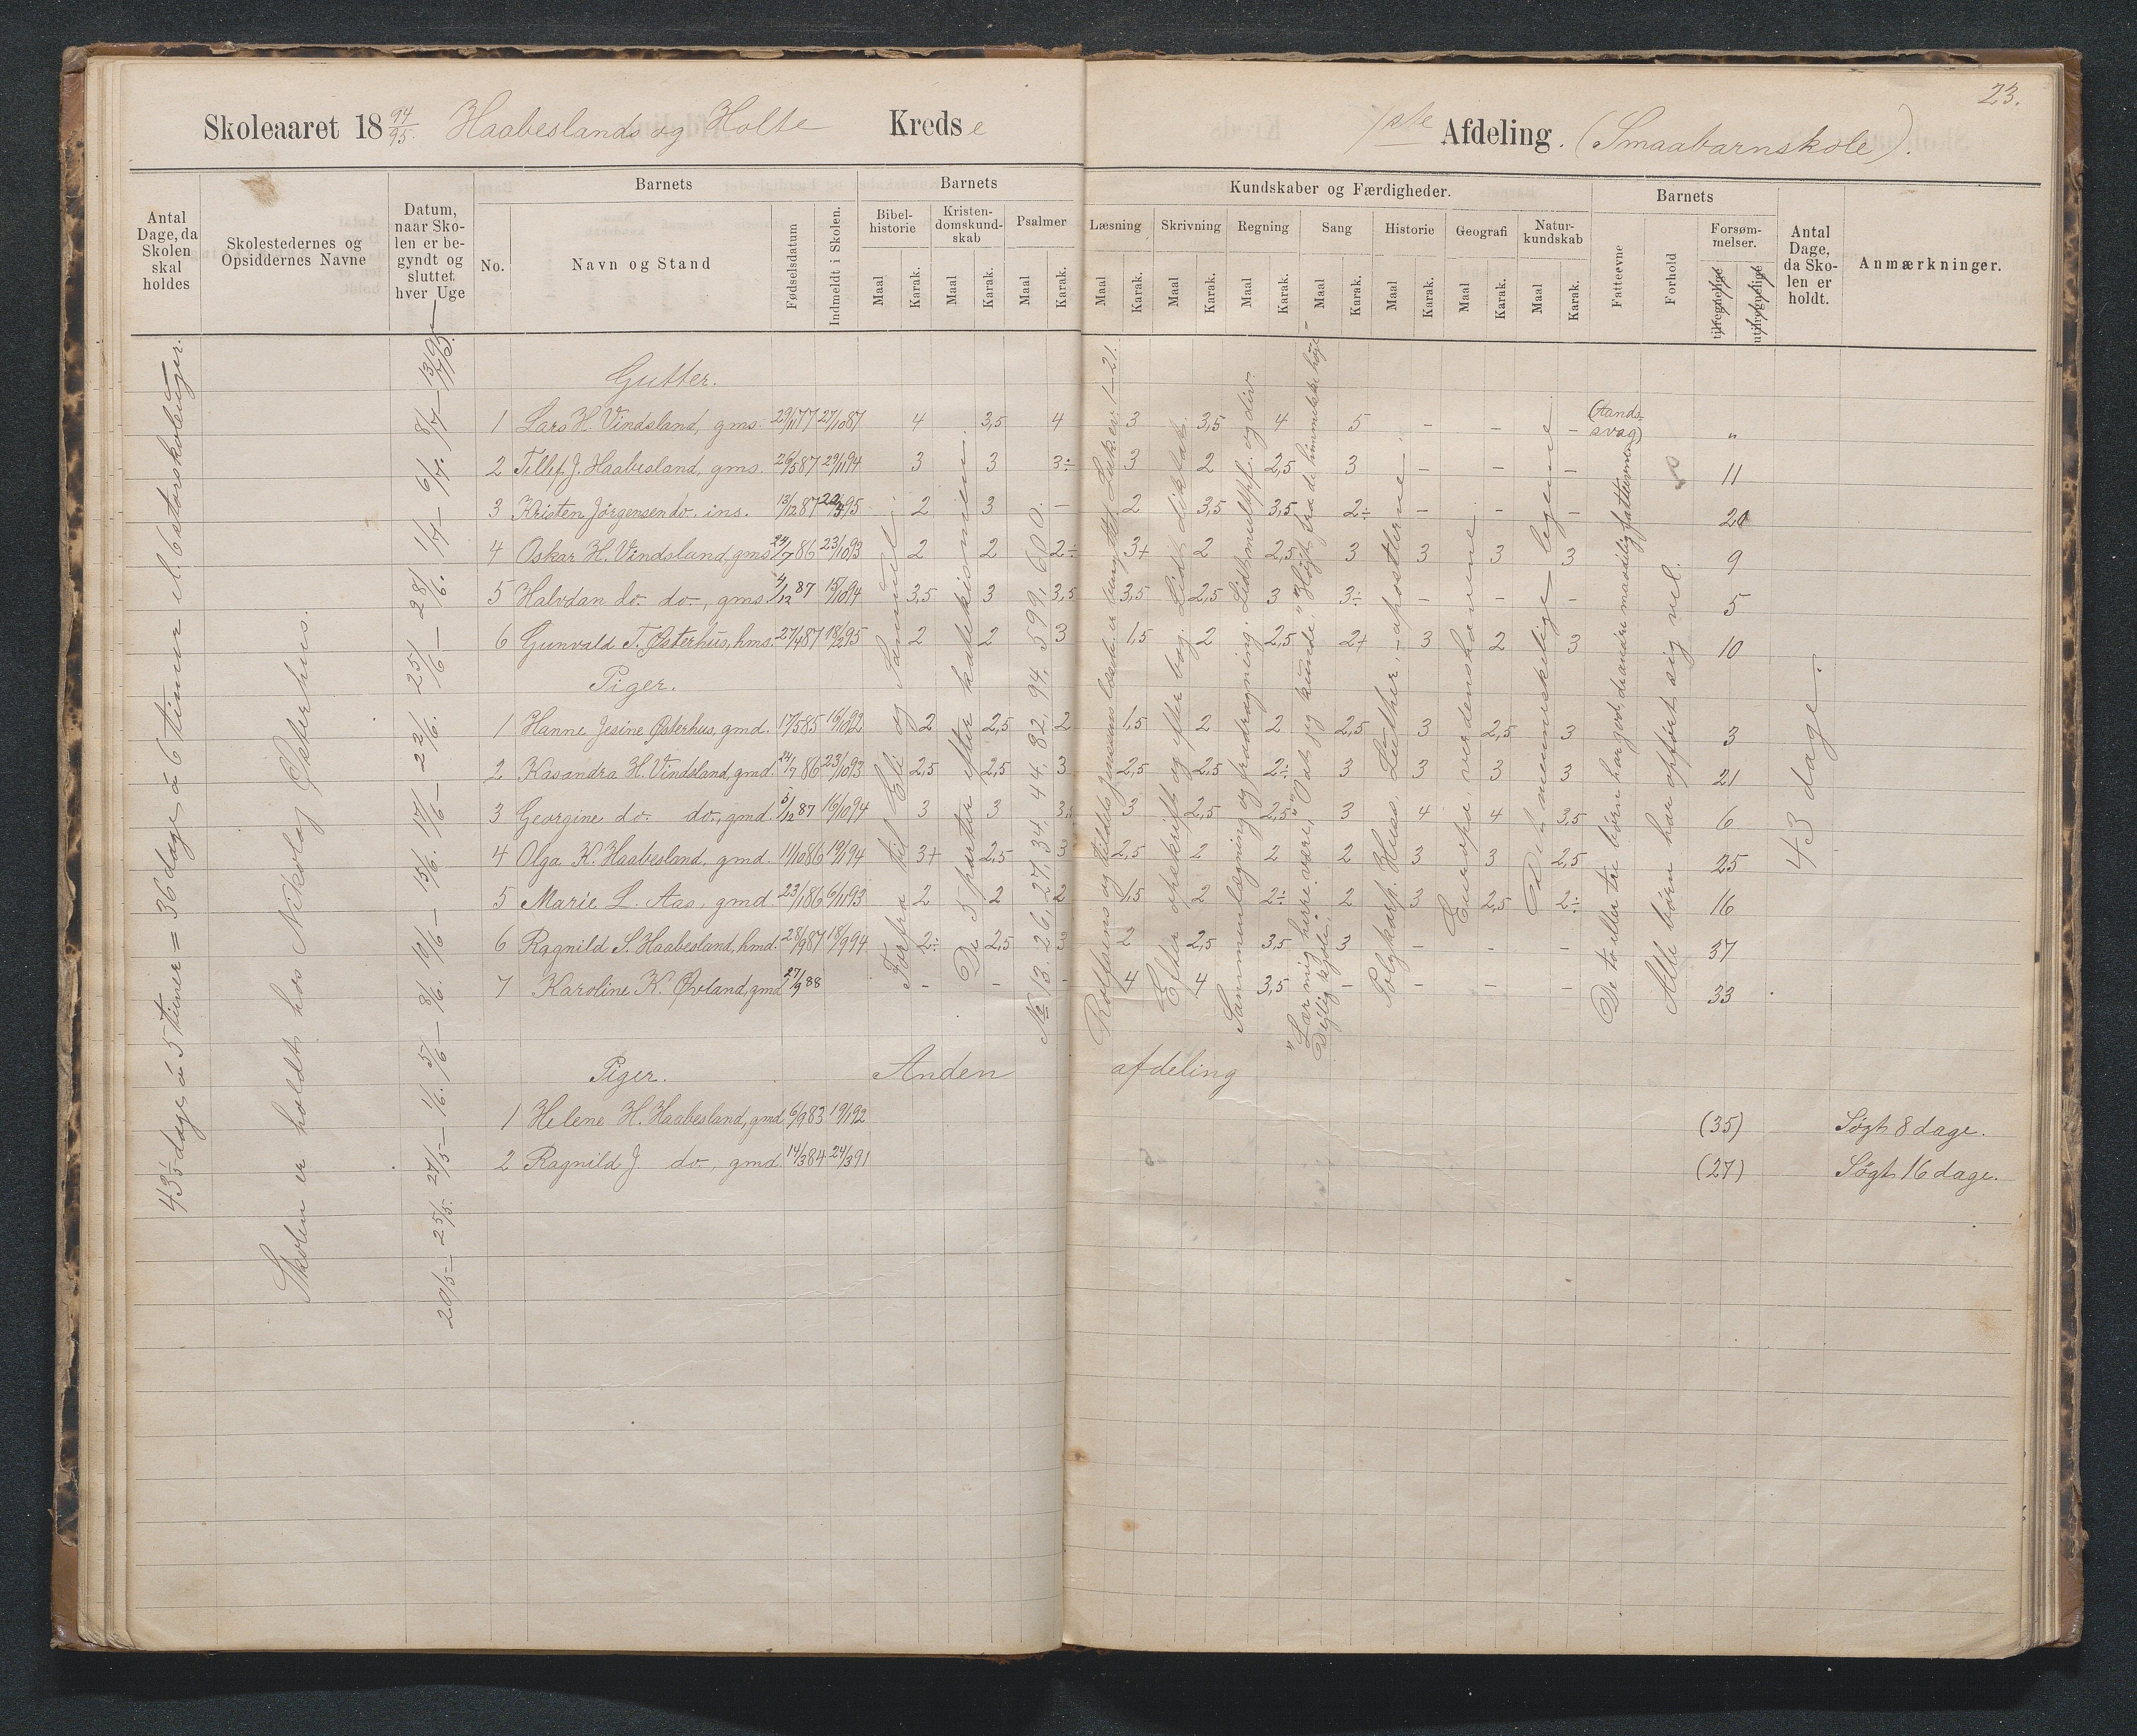 23.
Skoleaaret 18 94/95. Haabeslands og Holte Kredse
1ste Afdeling. (Smaabarnskole).
Antal Dage, da Skolen skal holdes
Skolestedernes og Opsiddernes Navne
Datum, naar Skolen er begyndt og sluttet hver Uge
Barnets
No.
Navn og Stand
Fødselsdatum
Indmeldt i Skolen.
Barnets
Bibelhistorie
Kristendomskundskab
Psalmer
Maal Karak. Maal Karak. Maal Karak.
Kundskaber og Færdigheder.
Læsning Skrivning Regning Sang Historie Geografi Naturkundskab
Maal Karak. Maal Karak. Maal Karak. Maal Karak. Maal Karak. Maal Karak. Maal Karak.
Barnets
Fatteevne
Forhold
Forsømmelser.
tilregnelige
utilregnelige
Antal Dage, da Skolen er holdt.
Anmærkninger.
43 1/5 dage à 5 timer = 36 dage à 6 timer el. 6 storskoleuger.
Skolen er holdt hos Nikolay Østerhus.
20/5 – 25/5. 27/5 – 1/6. 5/6 – 8/6. 10/6 – 15/6. 17/6 – 22/6. 25/6 – 28/6. 1/7 – 6/7. 8/7 – 13/7
Gutter.
1 Lars H. Vindsland, gms. 29/11 77 27/10 87 4 3,5 4 3 3,5 4 5 – – – (tandssvag) "
2 Tellef J. Haabesland, gms. 26/5 87 29/11 94 3 3 3÷ 3 2 2,5 3 – – – 11
3 Kristen Jørgensen do. ins. 13/12 87 95 2 3 – 2 3,5 3,5 2÷ – – –
4 Oskar H. Vindsland, gms. 24/7 86 23/10 93 2 2 2÷ 3+ 2 2,5 3 3 3 3 9
5 Halvdan do. do., gms. 4/12 87 15/10 94 3,5 3 3,5 3,5 2,5 3 3÷ – – – 5
6 Gunvald T. Østerhus, hms. 27/4 87 18/2 95 2 2 3 1,5 2 2,5 2+ 3 2 3 10
Piger.
1 Hanne Jesine Østerhus, gmd. 17/5 85 16/10 92 2 2,5 2 1,5 2 2 2,5 3 2,5 3 3
2 Kasandra H. Vindsland, gmd. 24/7 86 23/10 93 2,5 2,5 3 2,5 2,5 2÷ 3 3 3 3 21
3 Georgine do. do., gmd. 5/12 87 16/10 94 3 3 3,5 3 2,5 2,5 3 4 4 3,5 6
4 Olga K. Haabesland, gmd. 11/10 86 19/1 94 3+ 2,5 3 2,5 2 2 2 3 3 2,5 25
5 Marie L. Aas, gmd. 23/1 86 6/11 93 2 2 2 1,5 2 2÷ 2 3 2,5 2÷ 16
6 Ragnild S. Haabesland, hmd. 28/9 87 18/9 94 2÷ 2,5 3 2 2,5 3,5 3 – – – 37
7 Karoline K. Øvland, gmd 27/9 88 – – – 4 4 3,5 – – – – 33
Forfra til Eli og Samuel.
De 5 parter efter katekismen.
No 13, 26, 27, 34, 44, 82, 94, 599, 600.
Rolfsens og tildels Jensens læseb. a. Luk. ev. 1–21.
Efter opskrift og efter bog. Lidt diktat.
Sammenlægning og fradragning. Lidt multpl. og div.
"Lær mig herre være," "O at jeg kunde," "Højt fra det himmelske høje"
Dejlig er jorden.
Polykarp. Huss, Luther, – apostlerne.
Europa, verdenshavene
Det menneskelige legeme
De to eller tre børn har god, de andre maadelig fatteevne.
Alle børn har opført sig vel.
43 dage.
Piger. Anden afdeling
1 Helene H. Haabesland, gmd 6/9 83 19/1 92 (35) Søgt 8 dage.
2 Ragnild J do., gmd 14/3 84 24/3 91 (27) Søgt 16 dage.